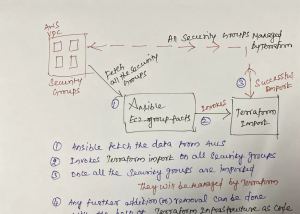 AWS
VPC
All Security Groups Managed
by Terraform
Security
Groups
Fetch
all the security
Groups
①
Ansible
Ec2-group-facts
Invokes
②
Terraform
Import
③
Successful
Import
① Ansible fetch the data from AWS
② Invokes Terraform import on all Security Groups
③ Once all the Security groups are imported
They will be managed by Terraform
④ Any further addition (or) removal can be done
Terraform Infrastructure as Code